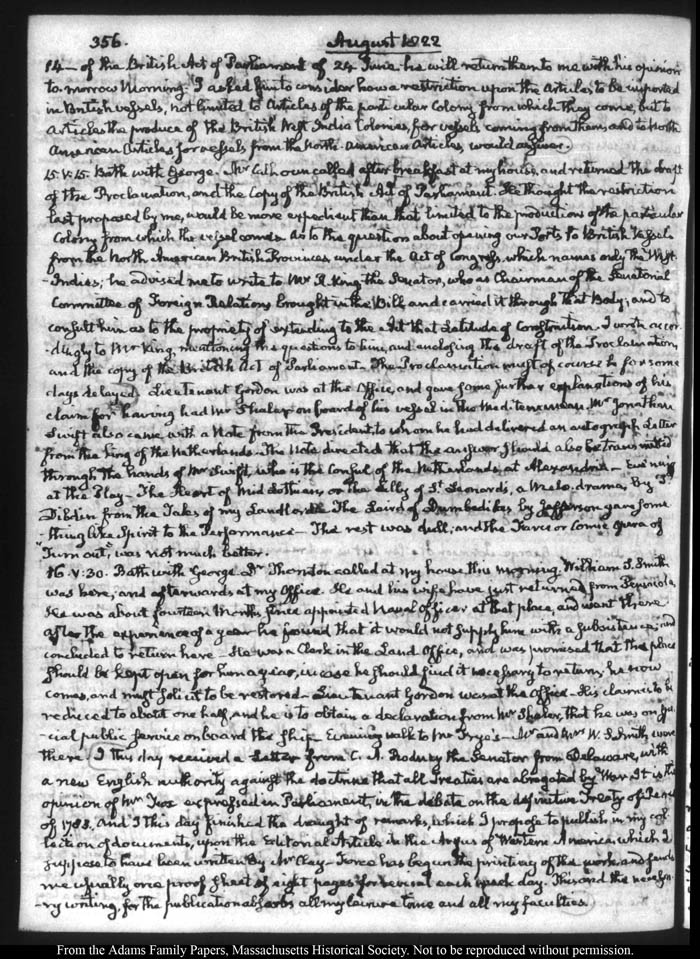 356.
August 1822
14 — of the British Act of Parliament of 24 June he will return them to me with his opinion
to-morrow Morning. I asked him to consider how a restriction upon the Articles to be imported
in British vessels, not limited to Articles of the particular Colony from which they come, but to
Articles the produce of the British West India Colonies, for vessels coming from them, and to North
American Articles for vessels from the North American Articles, would answer.
15. V:15. Bath with George. Mr Calhoun called after breakfast at my house, and returned the draft
of the Proclamation, and the Copy of the British Act of Parliament. He thought the restriction
last proposed by me, would be more expedient than that limited to the productions of the particular
Colony from which the vessel comes. As to the question about opening our Ports to British Vessels
from the North American British Provinces, under the Act of Congress, which names only the West-
-Indies; he advised me to write to Mr R. King the Senator, who as Chairman of the Senatorial
Committee of Foreign Relations brought in the Bill, and carried it through that Body; and to
consult him as to the propriety of extending to the Act that Latitude of Construction. I wrote accor-
-dingly to Mr King, mentioning the questions to him, and enclosing the draft of the Proclamation,
and the copy of the British Act of Parliament. The Proclamation must of course be for some
days delayed. Lieutenant Gordon was at the Office, and gave some further explanations of his
claim for having had Mr Shaler on board of his vessel in the Mediterranean. Mr Jonathan
Swift also came with a Note from the President, to whom he had delivered an autograph Letter
from the King of the Netherlands. The Note directed that the answer should also be transmitted
through the hands of Mr Swift, who is the Consul of the Netherlands, at Alexandria — Evening
at the Play — The Heart of Mid Lothian, or the Lilly of St. Leonards, a Melo-drama, By T.
Dibdin from the Tales of my Landlord. The Laird of Dumbedikes by Jefferson gave some-
-thing like Spirit to the Performance — The rest was dull; and the Farce or Comic Opera of
"Turn out," was not much better.
16. V:30. Bath with George. Dr Thornton called at my house this morning. William S. Smith
was here; and afterwards at my Office. He and his wife have just returned from Pensacola.
He was about fourteen Months since appointed Naval Officer at that place, and went there
after the experience of a year he found that it would not supply him with a subsistence, and
concluded to return here — He was a Clerk in the Land Office, and was promised that the place
should be kept open for him a year, in case he should find it necessary to return; he now
comes, and must solicit to be restored — Lieutenant Gordon was at the Office — His claim is to be
reduced to about one half, and he is to obtain a declaration from Mr Shaler, that he was on spe-
-cial public service on board the ship. Evening walk to Mr Frye's — Mr and Mrs W. S. Smith, were
there. I this day received a Letter from C. A. Rodney the Senator from Delaware, with
a new English authority against the doctrine that all Treaties are abrogated by War. It is the
opinion of Mr Fox expressed in Parliament, in the debate on the definitive Treaty of Peace
of 1783. And I this day finished the draught of remarks, which I propose to publish, in my col-
lection of documents, upon the Editorial Article in the Argus of Western America, which I
suppose to have been written by Mr Clay — Force has begun the printing of the work and sends
me usually one proof sheet of eight pages for revisal each week day. This and the necessa-
-ry writing, for the publication absorbs all my leisure time and all my faculties.
From the Adams Family Papers, Massachusetts Historical Society. Not to be reproduced without permission.